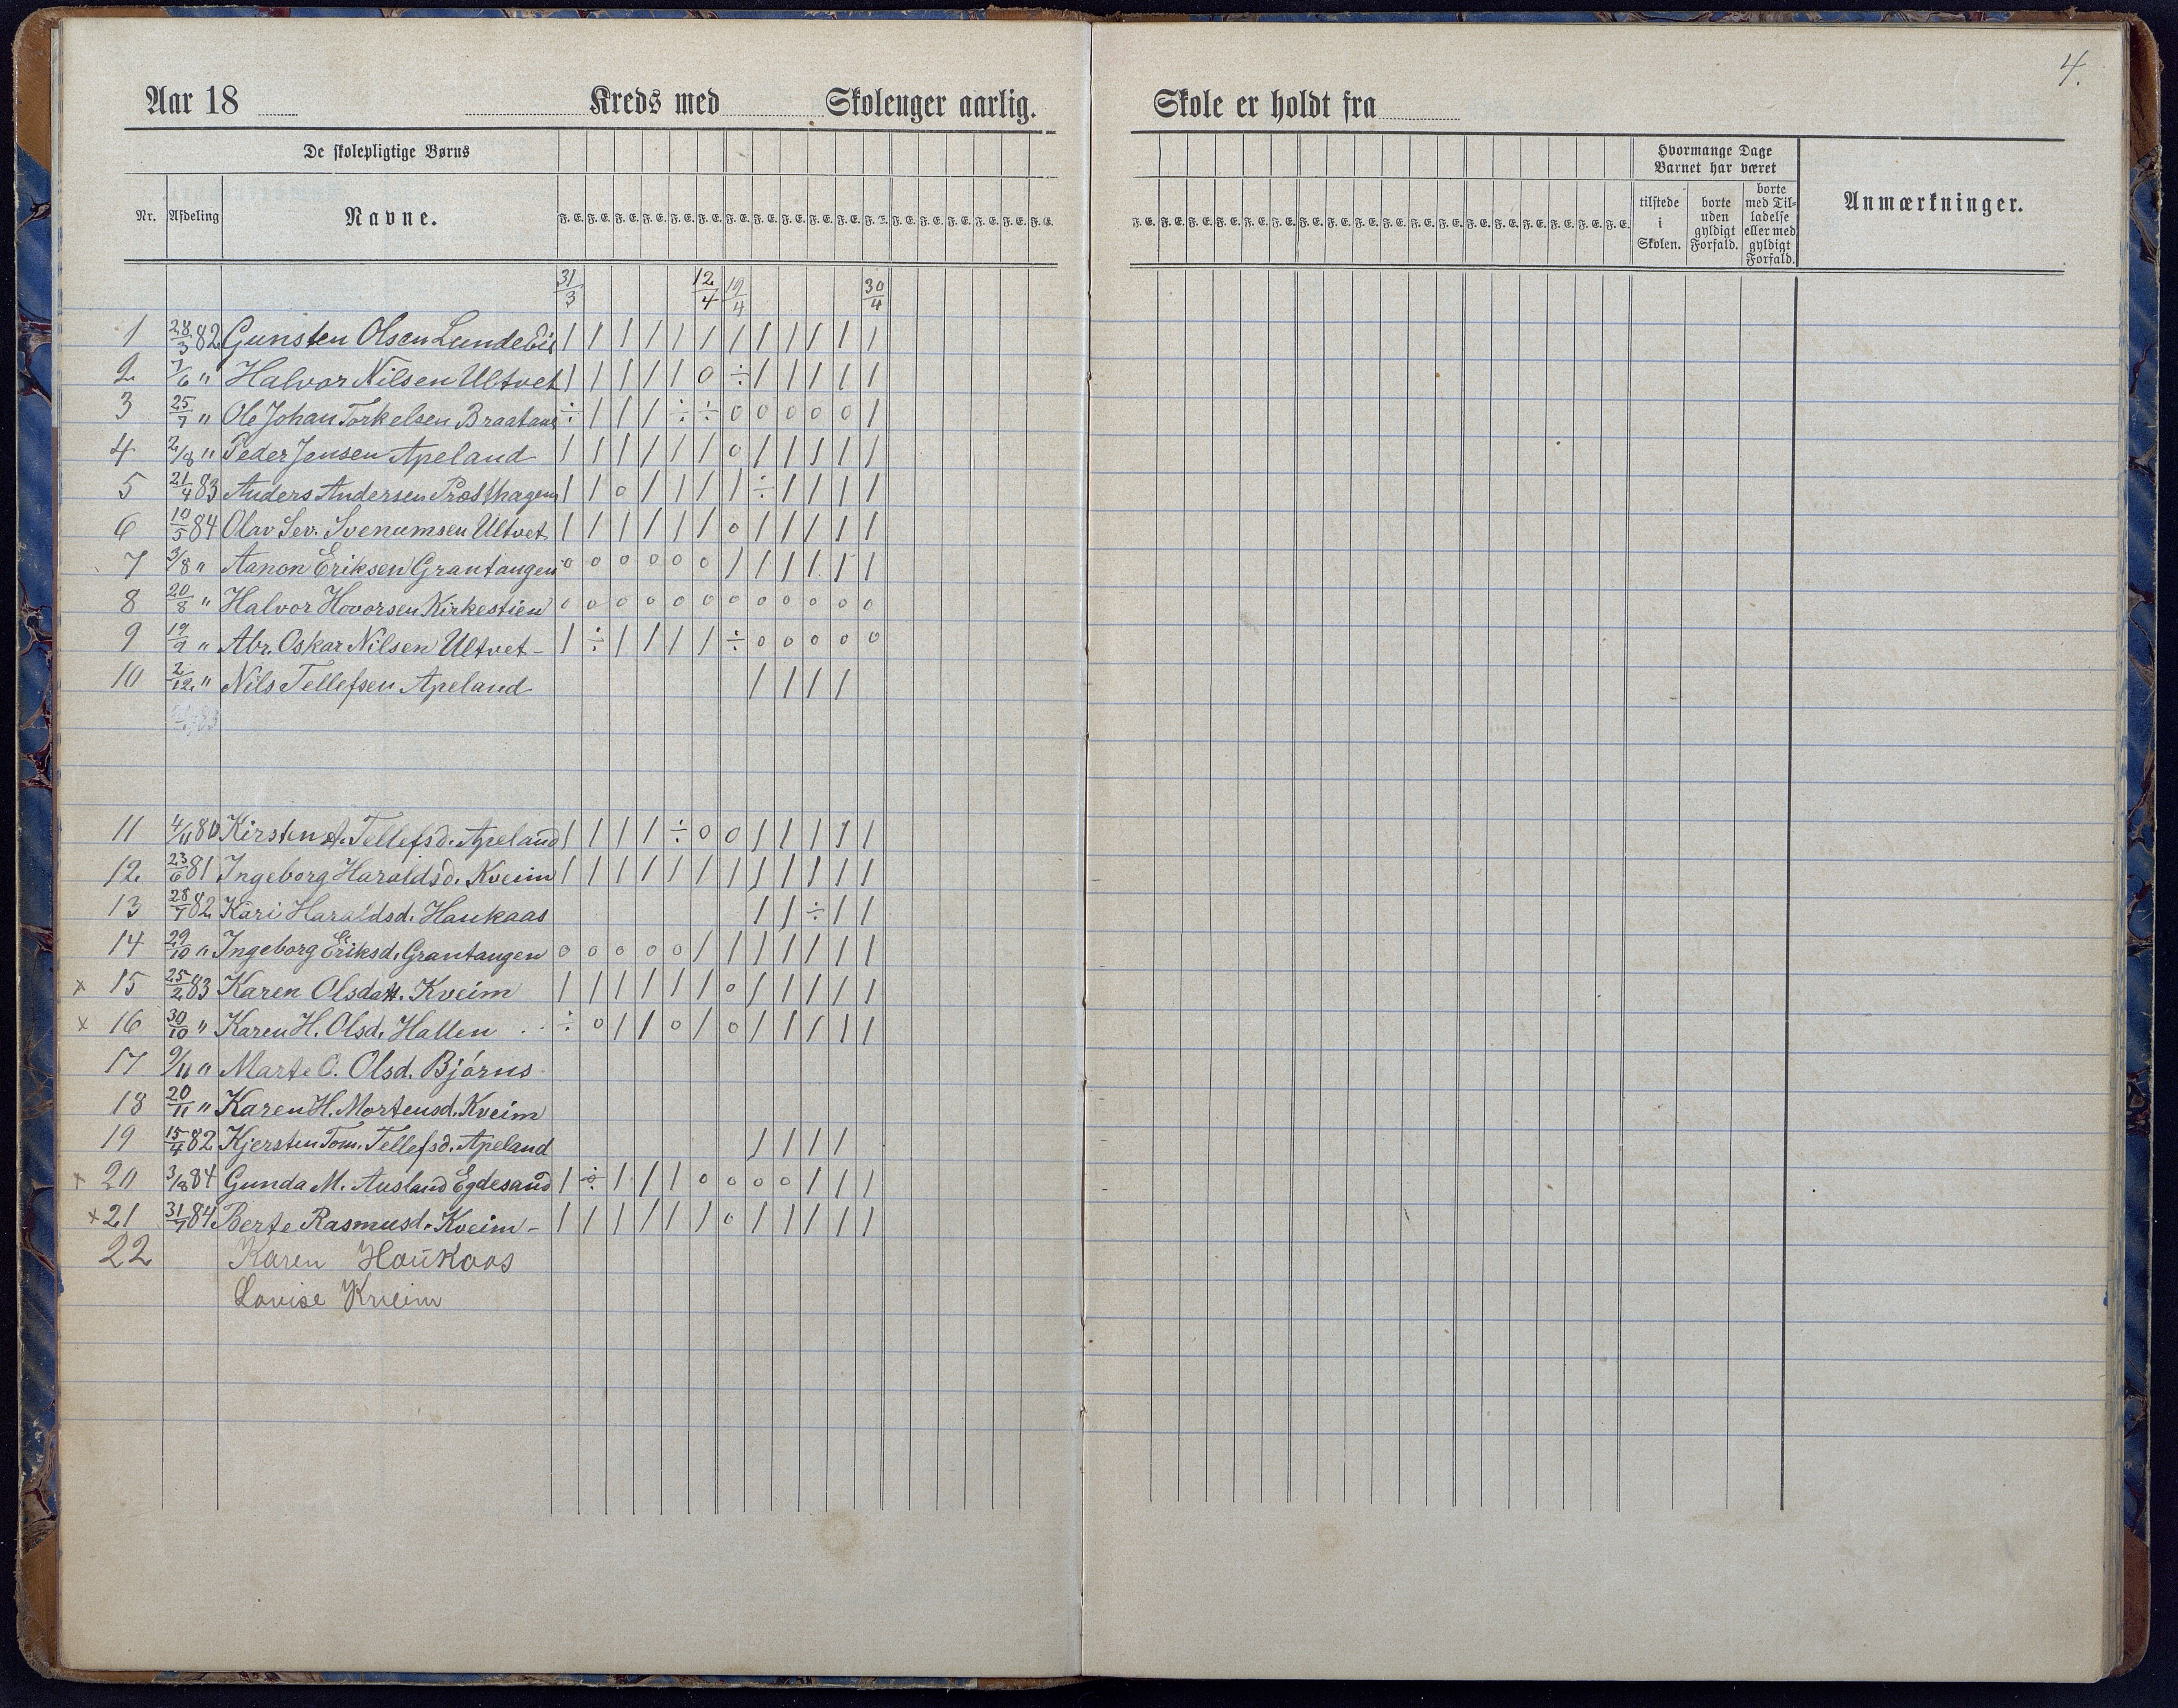 4.
Aar 18 Kreds med Skolenger aarlig. Skole er holdt fra
De skolepligtige Børns
Nr. Afdeling Navne. F. E. F. E. F. E. F. E. F. E. F. E. F. E. F. E. F. E. F. E. F. E. F. E. F. E. F. E. F. E. F. E. F. E. F. E.
F. E. F. E. F. E. F. E. F. E. F. E. F. E. F. E. F. E. F. E. F. E. F. E. F. E. F. E. F. E. F. E. F. E. F. E.
Hvormange Dage Barnet har været
tilstede i Skolen.
borte uden gyldigt Forfald.
borte med Tilladelse eller med gyldigt Forfald.
Anmærkninger.
31/3 12/4 19/4 30/4
1 28/3 82 Gunsten Olsen / / / / / / / / / / / /
2 7/6 " Halvor Nilsen Ultvet / / / / / 0 ÷ / / / / /
3 25/7 " Ole Johan Torkelsen Braatane ÷ / / / ÷ ÷ 0 0 0 0 0 /
4 2/8 " Peder Jensen Apeland / / / / / / 0 / / / / /
5 21/4 83 Anders Andersen Præsthagen / / 0 / / / / ÷ / / / /
6 10/5 84 Olav Sev. Svenumsen Ultvet / / / / / / 0 / / / / /
7 3/8 " Aanon Eriksen Grantangen 0 0 0 0 0 0 / / / / / /
8 20/8 " Halvor Hovorsen Kirkestien 0 0 0 0 0 0 0 0 0 0 0 0
9 19/9 " Abr. Oskar Nilsen Ultvet - / ÷ / / / / ÷ 0 0 0 0 0
10 2/12 " Nils Tellefsen Apeland / / / /
11 4/11 80 Kirsten A. Tellefsd. Apeland / / / / ÷ 0 0 / / / / /
12 23/6 81 Ingeborg Haraldsd. Kveim / / / / / / / / / / / /
13 28/7 82 Kari Haraldsd. Haukaas / / ÷ / /
14 29/10 " Ingeborg Eriksd. Grantangen 0 0 0 0 0 / / / / / / /
x 15 25/2 83 Karen Olsdatt. Kveim / / / / / / 0 / / / / /
x 16 30/10 " Karen H. Olsd. Hallen ÷ 0 / / 0 / 0 / / / / /
17 9/11 " Marte O. Olsd. Bjørns
18 20/11 " Karen H. Mortensd. Kveim
19 15/4 82 Kjersten Tom. Tellefsd. Apeland / / / /
x 20 3/8 84 Gunda M. Ausland Egdesand / ÷ / / / 0 0 0 0 / / /
x 21 31/7 84 Berte Rasmusd. Kveim - / / / / / / 0 / / / / /
22 Karen Haukaas
Lovise Kveim